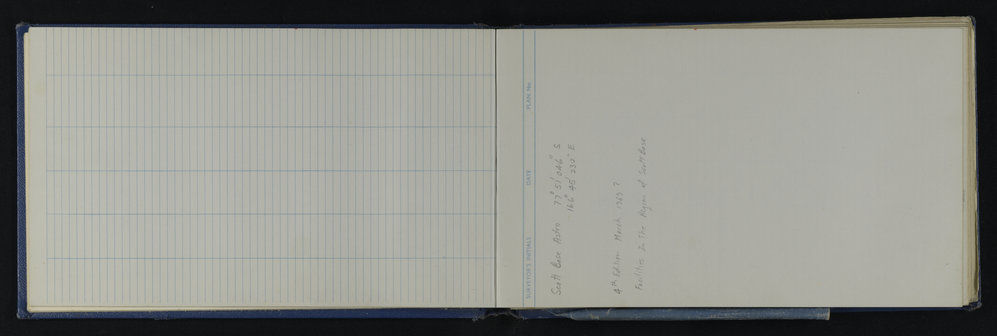 SURVEYOR'S INITIALS DATE PLAN No.
Scott Base Astro 77° 51' 046" S
166° 45' 230" E
4th Edition March 1969 ?
Facilities In The Region of Scott Base